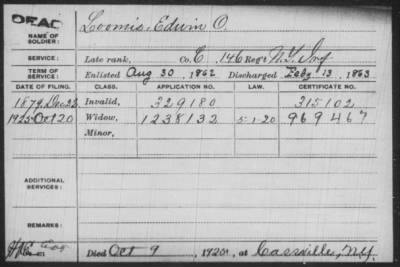 DEAD
NAME OF SOLDIER: Loomis, Edwin O.
SERVICE: Late rank, Co. C, 146 Reg't N.Y. Inf
TERM OF SERVICE: Enlisted Aug 30, 1862 Discharged Feby 13, 1863
DATE OF FILING. CLASS. APPLICATION NO. LAW. CERTIFICATE NO.
1879, Dec 22 Invalid, 329180 315102
1920 Oct 20 Widow, 1238132 5-1-20 969467
Minor,
ADDITIONAL SERVICES:
REMARKS:
Died Oct 9, 1920, at Cassville, N.Y.